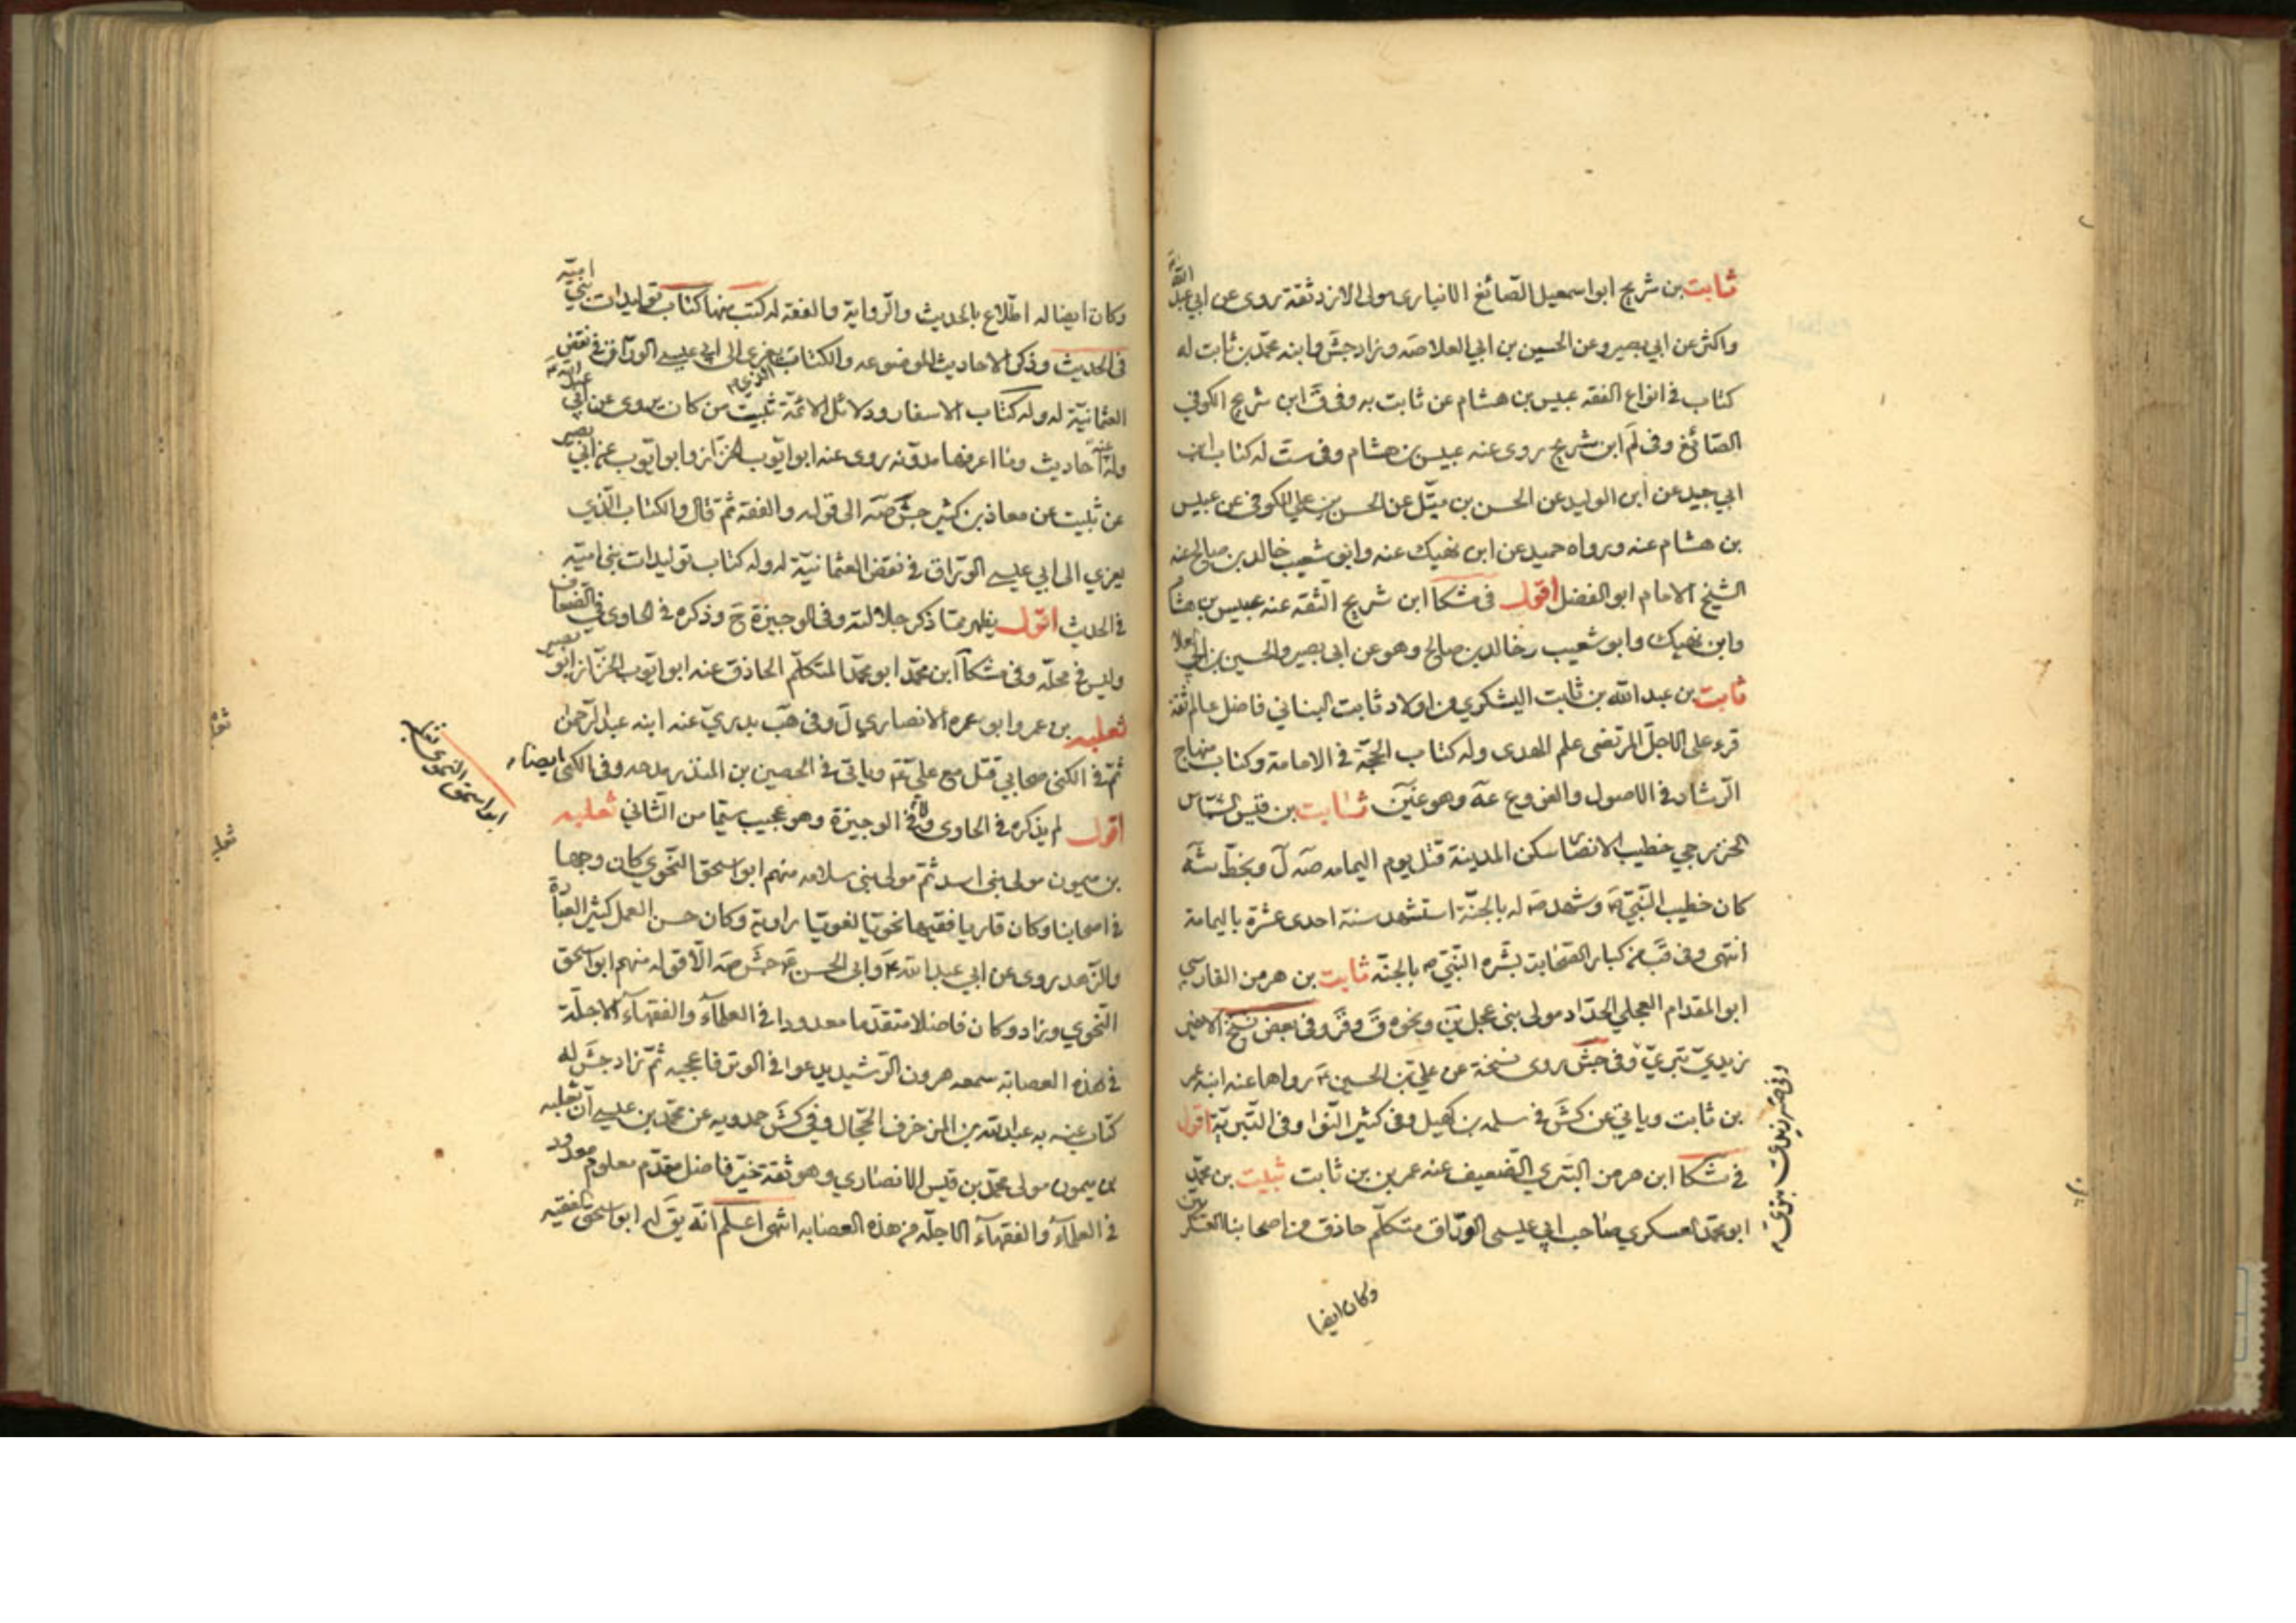 ثابت بن شريح ابو اسمعيل الصّائغ الانبارى مولى الازد ثقة روى عن ابي عبد الله
واكثر عن ابي بصير وعن الحسين بن ابي العلا صه وزاد جش وابنه محمّد بن ثابت له
كتاب في انواع الفقه عبيس بن هشام عن ثابت به وفي ق ابن شريح الكوفي
الصّائغ وفي لم ابن شريح روى عنه عبيس بن هشام وفي ست له كتاب ابن
ابي جيد عن ابن الوليد عن الحسن بن متيّل عن الحسن بن علي الكوفي عن عبيس
بن هشام عنه ورواه حميد عن ابن نهيك عنه وابو شعيب خالد بن صالح عنه
الشيخ الامام ابو الفضل اقول في مشكا ابن شريح الثّقة عنه عبيس بن هشام
وابن نهيك وابو شعيب خالد بن صالح وهو عن ابي بصير والحسين بن ابي العلا
ثابت بن عبد الله بن ثابت اليشكري من اولاد ثابت البناني فاضل عالم ثقة
قرء على الاجلّ المرتضى علم الهدى وله كتاب الحجّة في الامامة وكتاب منهاج
الرّشاد في الاصول والفروع عه وهو غين ثابت بن قيس الشمّاس
الخزرجي خطيب الانصار سكن المدينة قتل يوم اليمامه صه ل وبخطّ شه
كان خطيب النّبيّ ص وشهد ص له بالجنّة استشهد سنة احدى عشرة باليمامة
انتهى وفي قب من كبار الصّحابة بشّره النّبيّ ص بالجنّه ثابت بن هرمز الفارسي
ابو المقدام العجلي الحدّاد مولى بني عجل ين ونحوه ق وقر وفي بعض نسخ الاخير
زيديّ بتريّ وفي جش روى نسخة عن علي بن الحسين ع رواها عنه ابنه عمر
بن ثابت وياتي عن كش في سلمه بن كهيل وفي كثير النّوا وفي البتريّة اقول
في مشكا ابن هرمز البتري الضّعيف عنه عمر بن ثابت ثبيت بن محمّد
ابو محمّد العسكري صاحب ابي عيسى الورّاق متكلّم حاذق من اصحابنا العسكريين
وكان ايضا
وكان ايضا له اطّلاع بالحديث والرّواية والفقه له كتب منها كتاب توليدات بني اميّه
في الحديث وذكر الاحاديث الموضوعه والكتاب الذي يعزى الى ابي عيسى الورّاق في نقض
العثمانيّة له وله كتاب الاسفار ودلائل الائمّة ثبيت من كان يروي عن ابي عبد الله ع
وله عنه احاديث وما اعرفها مدوّنه روى عنه ابو ايّوب الخزّاز وابو ايّوب عن ابي بصير
عن ثبيت عن معاذ بن كثير جش صه الى قوله والفقه ثمّ قال والكتاب الّذي
يعزي الى ابي عيسى الورّاق في نقض العثمانيّة له وله كتاب توليدات بني اميّه
في الحديث اقول يظهر ممّا ذكر جلالته وفي الوجيزة ح وذكره في الحاوى في الضعاف
وليس في محلّه وفي مشكا ابن محمّد ابو محمّد المتكلّم الحاذق عنه ابو ايّوب الخزّاز ابو بصير
ثعلبه بن عمرو ابو عمره الانصاري ل وفي هب بدريّ عنه ابنه عبد الرّحمن
ثمّ في الكنى صحابي قتل مع علي ع وياتي في الحصين بن المنذر مدحه وفي الكنى ايضا
اقول لم يذكره في الحاوى ولا في الوجيزة وهو عجيب سيّما من الثّاني ثعلبه
بن ميمون مولى بني اسد ثمّ مولى بني سلامه منهم ابو اسحق النّحوي كان وجها
في اصحابنا وكان قاريا فقيها نحويّا لغويّا راوية وكان حسن العمل كثير العبادة
والزّهد روى عن ابي عبد الله ع وابي الحسن ع جش صه الّا قوله منهم ابو اسحق
النّحوي وزاد وكان فاضلا متقدّما معدودا في العلمآء والفقهآء الاجلّة
في هذه العصابة سمعه هرون الرّشيد يدعوا في الوتر فاعجبه ثمّ زاد جش له
كتاب عنه به عبد الله بن المزخرف الحجّال وفي كش حمدويه عن محمّد بن عيسى انّ ثعلبه
بن ميمون مولى محمّد بن قيس الانصاري وهو ثقة خيّر فاضل مقدّم معلوم معدود
في العلمآء والفقهآء الاجلّه من هذه العصابه انتهى اعلم انّه يق له ابو اسحق الفقيه
ابو اسحق النحوى ثعلبه